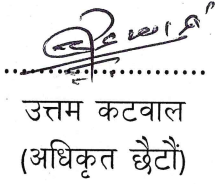 उत्तम कटवाल
(अधिकृत छैटौं)